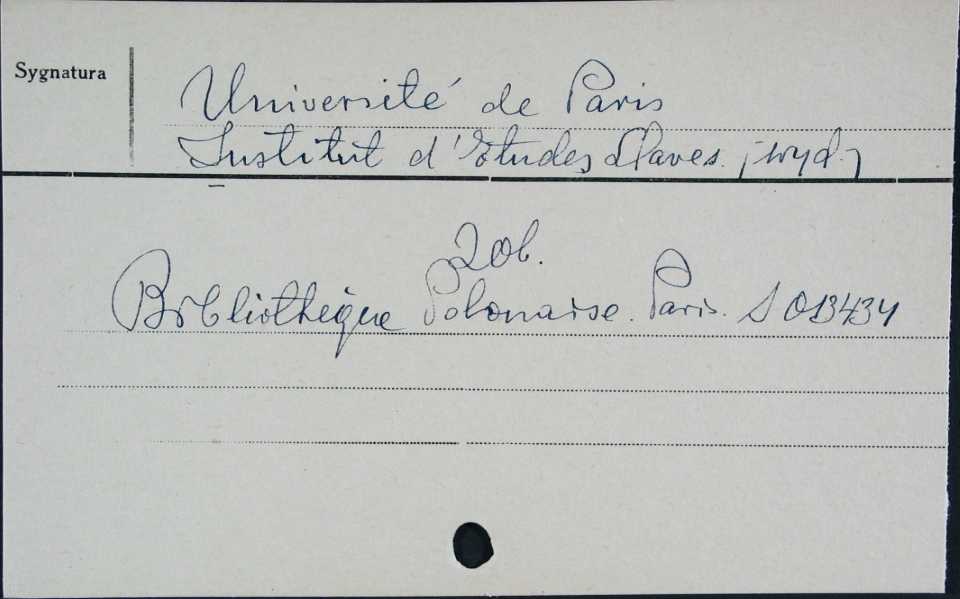 Sygnatura
Université de Paris
Institut d'Etudes Slaves. /wyd./
Zob.
Bibliothèque Polonaise. Paris. S 013434